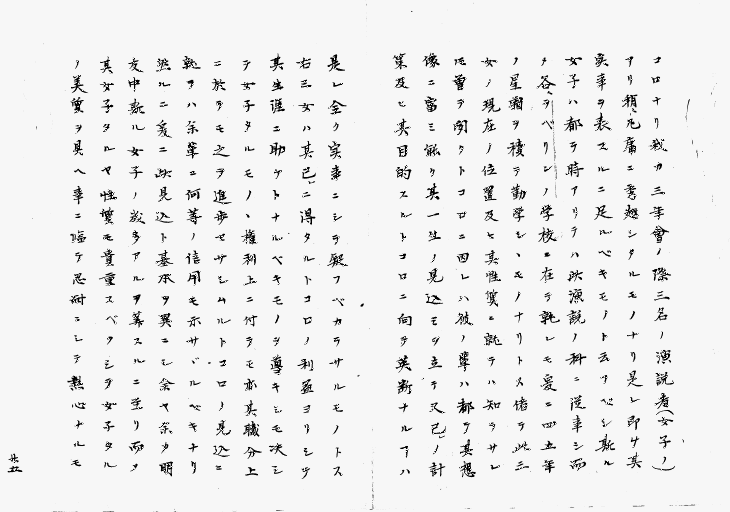 コロナリ我カ三年會ノ際三名ノ演説者(女子ノ)
アリ稍凡庸ニ秀越シタルモノナリ是レ即ケ其
実事ヲ表スルニ足ルベキモノト云フベシ斯ル
女子ハ都テ時アリテハ此演説ノ科ニ従事シ而
タ各ヲベリンノ学校ニ在テ孰レモ爰ニ四五年
ノ星霜ヲ積テ勤学シヽモノナリトス偖テ此三
女ノ現在ノ位置及ヒ其性質ニ就テハ知ラサレ
モ曽テ聞クトコロニ因レハ彼ノ輩ハ都テ其想
像ニ富ミ能ク其一生ノ見込ミヲ立テ又己ノ計
策及ヒ其目的スルトコロニ向テ英断ナルヿハ
是レ全ク実事ニシテ疑フベカラサルモノトス
右三女ハ其已ニ得タルトコロノ利益ヨリシテ
其生涯ニ助ケトナルベキモノヲ導キシモ決シ
テ女子タルモノヽ権利上ニ付テモ亦其職分上
ニ於テモ之ヲ進歩セサシムルトコロノ見込ニ
就テハ余輩ニ何等ノ信用モ示サヾルベキナリ
然ルニ爰ニ此見込ト基本ヲ異ニシ余ヤ余カ明
友中斯ル女子ノ数多アルヲ算スルニ至リ而タ
其女子タルヤ性質モ貴重スベクシテ女子タル
ノ美質ヲ具ヘ事ニ臨テ忍耐ニシテ熱心ナルモ